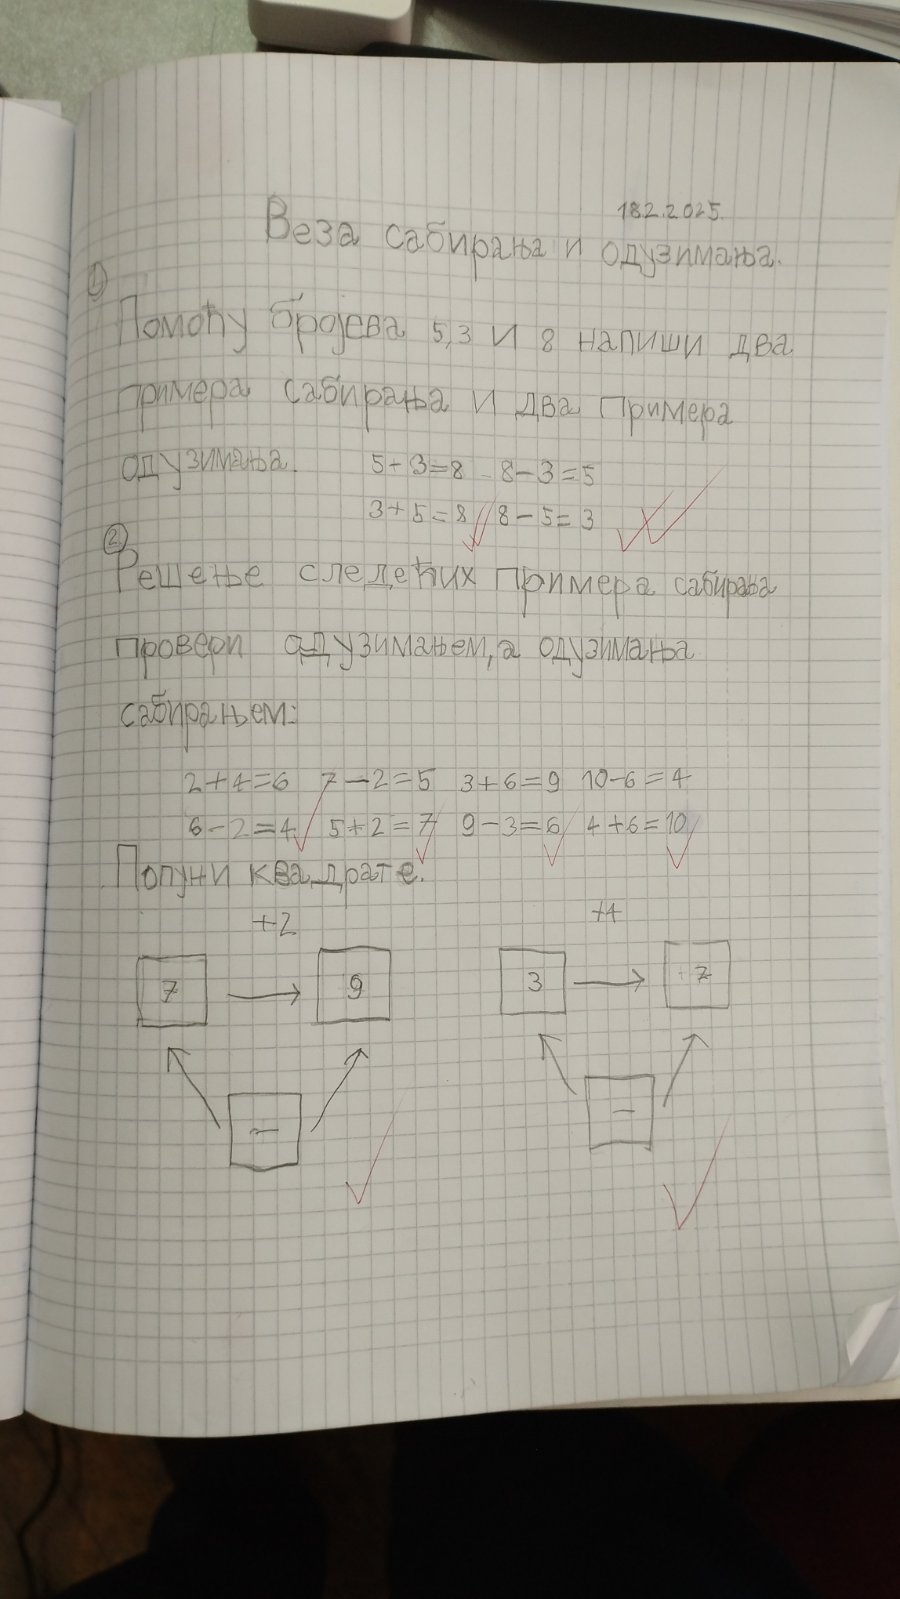 18.2.2025.
Веза сабирања и одузимања.
1
Помоћу бројева 5,3 и 8 напиши два
примера сабирања и два примера
одузимања. 5+3=8 8-3=5
3+5=8 8-5=3
2
Решење следећих примера сабирања
провери одузимањем, а одузимања
сабирањем:
2+4=6 7-2=5 3+6=9 10-6=4
6-2=4 5+2=7 9-3=6 4+6=10
Попуни квадрате.
+2 +4
7 → 9 3 → 7
- -